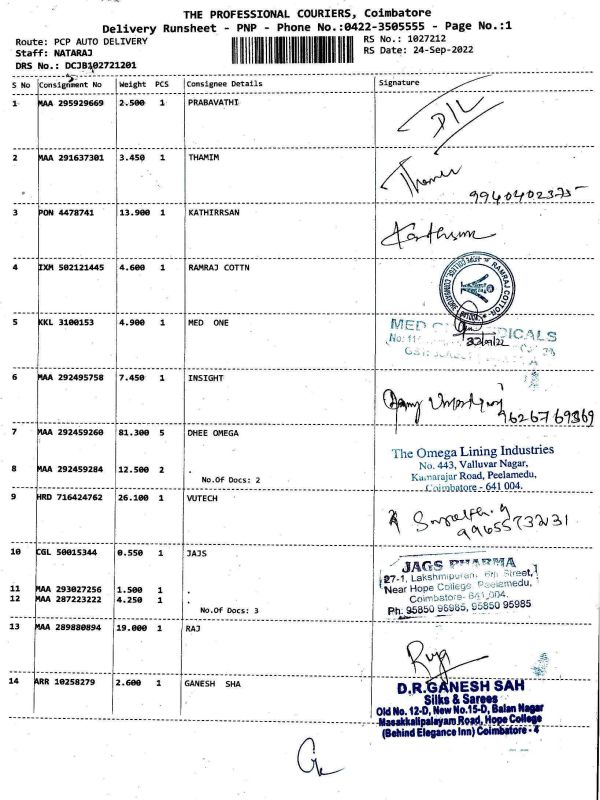 THE PROFESSIONAL COURIERS, Coimbatore
Delivery Runsheet - PNP - Phone No.:0422-3505555 - Page No.:1
Route: PCP AUTO DELIVERY
RS No.: 1027212
Staff: NATARAJ
RS Date: 24-Sep-2022
DRS No.: DCJB102721201
S No Consignment No Weight PCS Consignee Details Signature
1 MAA 295929669 2.500 1 PRABAVATHI
D/L
2 MAA 291637301 3.450 1 THAMIM
9940402375
3 PON 4478741 13.900 1 KATHIRRSAN
4 IXM 502121445 4.600 1 RAMRAJ COTTN
RAMRAJ COTTON
5 KKL 3100153 4.900 1 MED ONE
MED
ICALS
6 MAA 292495758 7.450 1 INSIGHT
9626769369
7 MAA 292459260 81.300 5 DHEE OMEGA
The Omega Lining Industries
No. 443, Valluvar Nagar,
8 MAA 292459284 12.500 2 .
Kamarajar Road, Peelamedu,
No.Of Docs: 2
Coimbatore - 641 004.
9 HRD 716424762 26.100 1 VUTECH
9965573231
10 CGL 50015344 0.550 1 JAJS
JAGS PHARMA
27-1, Lakshmipuram, 6th Street,
11 MAA 293027256 1.500 1 .
Near Hope College, Peelamedu,
12 MAA 287223222 4.250 1 .
Coimbatore- 641 004.
No.Of Docs: 3
Ph: 95850 96985, 95850 95985
13 MAA 289880894 19.000 1 RAJ
14 ARR 10258279 2.600 1 GANESH SHA
D.R.GANESH SAH
Silks & Sarees
Old No. 12-D, New No.15-D, Balan Nagar
Masakkalipalayam Road, Hope College
(Behind Elegance Inn) Coimbatore - 4